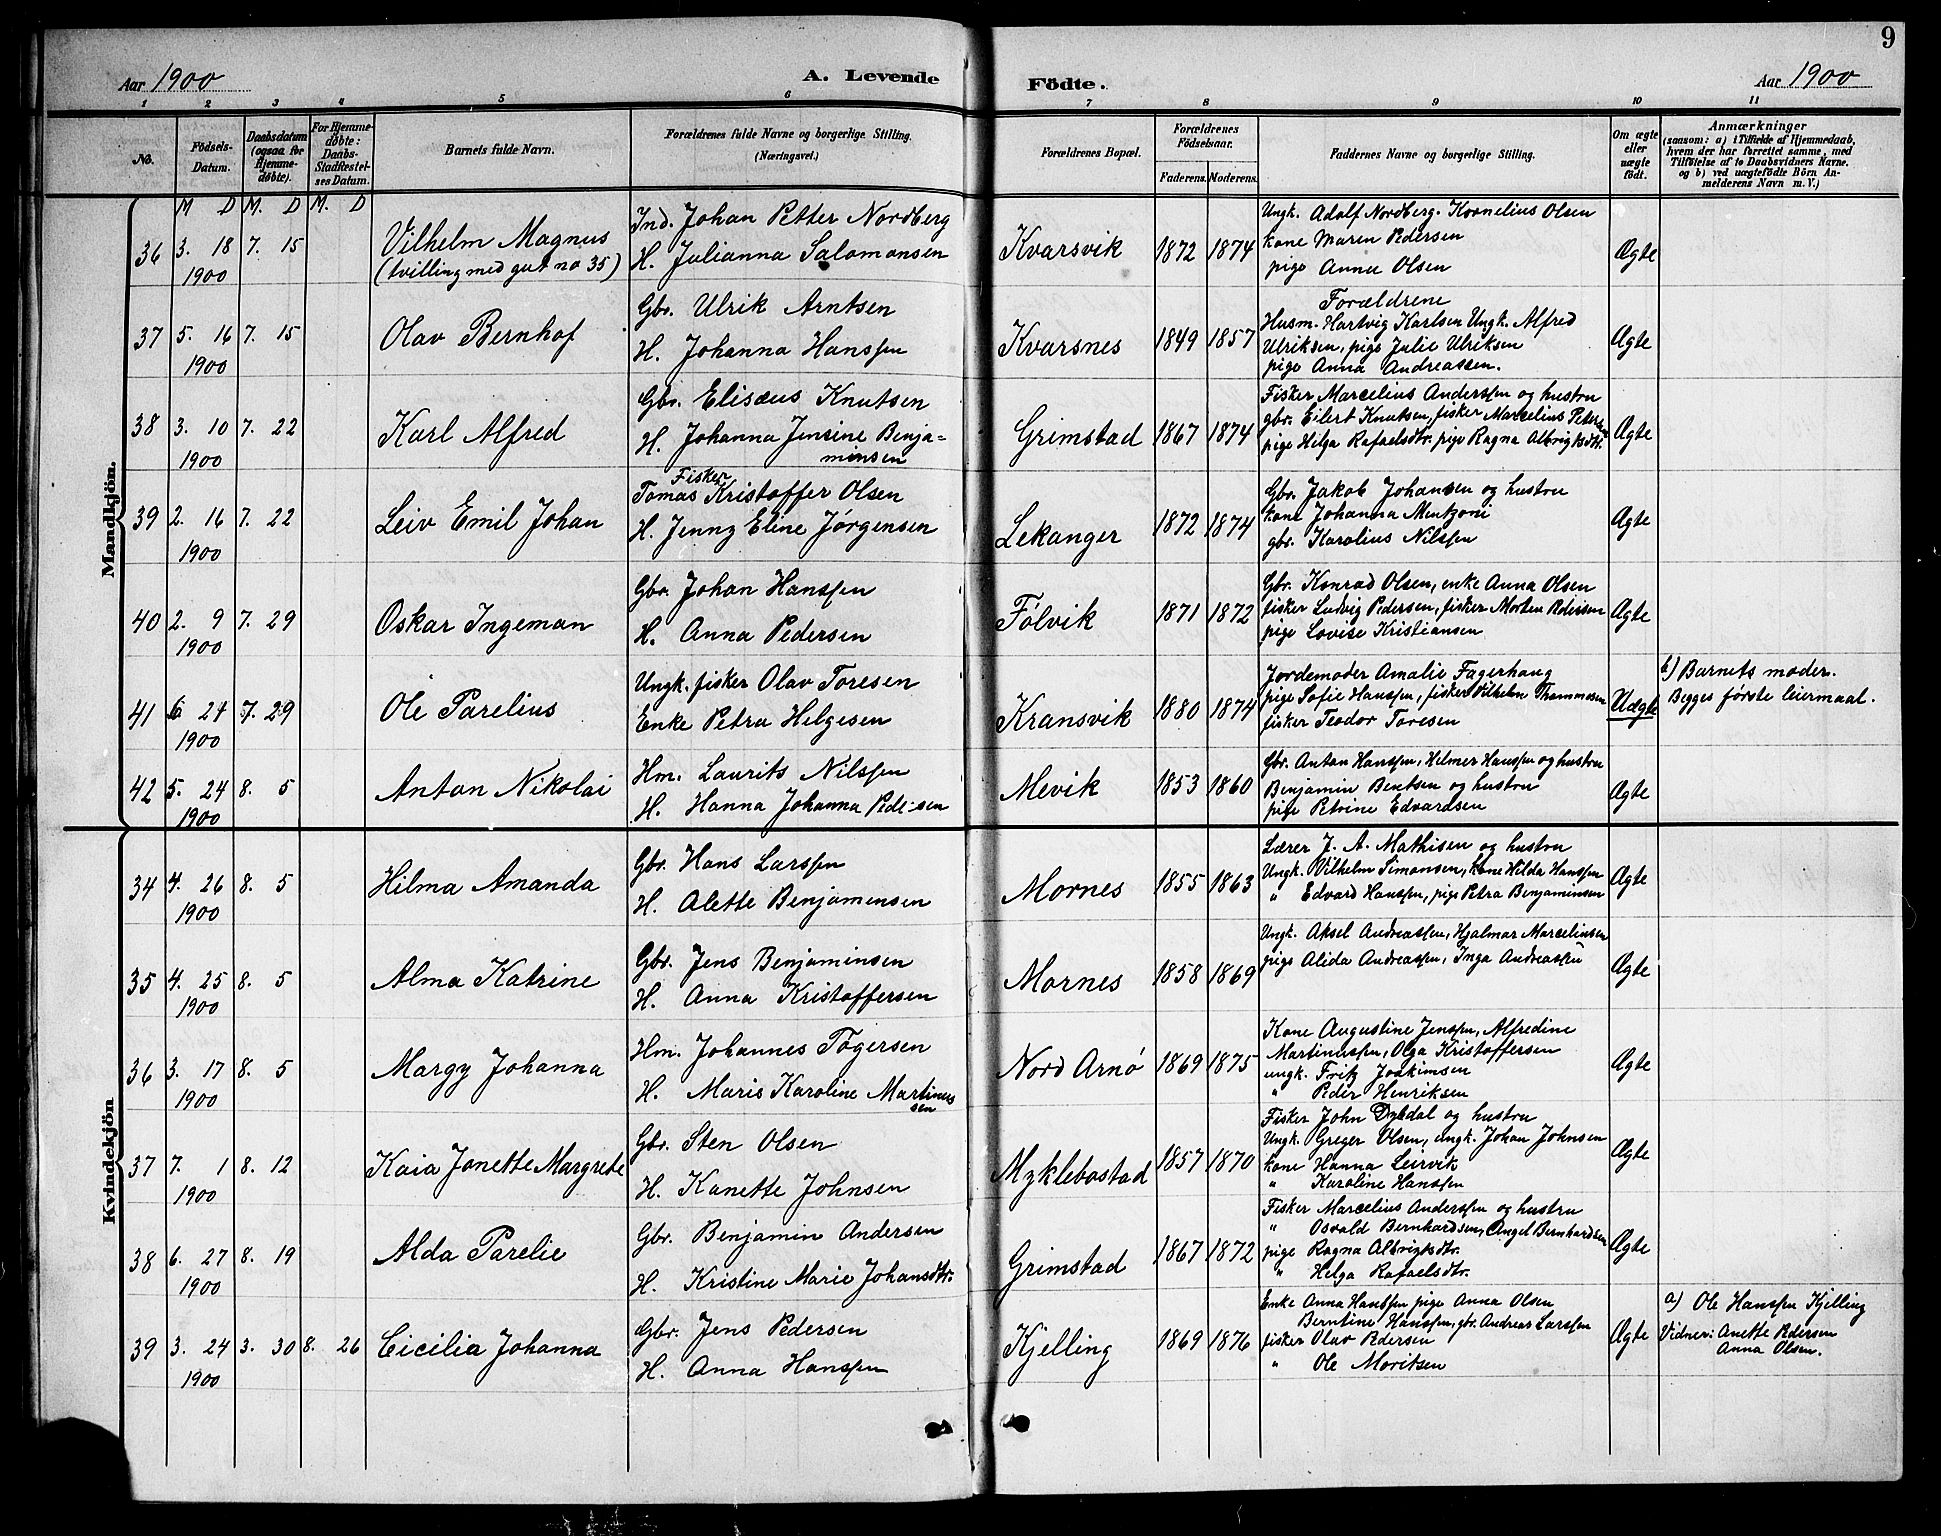 9
Aar 1900 A. Levende Födte. Aar 1900
1 2 3 4 5 6 7 8 9 10 11
No. Födsels-Datum. Daabsdatum (ogsaa for Hjemmedøbte). For Hjemmedøbte: Daabs-Stadfæstelses Datum. Barnets fulde Navn. Forældrenes fulde Navne og borgerlige Stilling. (Næringsvei.) Forældrenes Bopæl. Forældrenes Födselsaar. Faderens. Moderens. Faddernes Navne og borgerlige Stilling. Om ægte eller uægte födt. Anmærkninger (saasom: a) i Tilfælde af Hjemmedaab, hvem der har forrettet samme, med Tilföielse af to Daabsvidners Navne. og b) ved uægtefödte Börn Anmelderens Navn m. V.)
M D M. D M. D
Mandkjön.
36 3. 18 1900 7. 15 Vilhelm Magnus (tvilling med gut no 35)
Ind. Johan Petter Nordberg
H. Julianna Salomonsen
Kvarsvik 1872 1874
Ungk. Adolf Nordberg. Kornelius Olsen
kone Maren Pedersen
pige Anna Olsen
Ægte
37 5. 16 1900 7. 15 Olav Bernhof
Gbr. Ulrik Arntsen
H. Johanna Hanssen
Kvarsnes 1849 1857
Forældrene
Husm. Hartvig Karlsen Ungk. Alfred
Ulriksen, pige Julie Ulriksen
pige Anna Andreassen.
Ægte
38 3. 10 1900 7. 22 Karl Alfred
Gbr. Elisæus Knutsen
H. Johanna Jensine Benja=
minsen
Grimstad 1867 1874
Fisker Marcelius Anderssen og hustru
gbr. Eilert Knutsen, fisker Marcelius Petersen
pige Helga Rafaelsdtr. pige Ragna Albrigtsdtr.
Ægte
39 2. 16 1900 7. 22 Leiv Emil Johan
Fisker
Tomas Kristoffer Olsen
H. Jenny Eline Jørgensen
Lekanger 1872 1874
Gbr. Jakob Johansen og hustru
kone Johanna Mentzoni
gbr. Karolius Nilssen
Ægte
40 2. 9 1900 7. 29 Oskar Ingeman
Gbr. Johan Hanssen
H. Anna Pedersen
Følvik 1871 1872
Gbr. Konrad Olsen, enke Anna Olsen
fisker Ludvig Pedersen, fisker Morten Pedersen
pige Lovise Kristiansen
Ægte
41 6. 24 1900 7. 29 Ole Parelius
Ungk. fisker Olav Toresen
Enke Petra Helgesen
Kransvik 1880 1874
Jordemoder Amalie Fagerhaug
pige Sofie Hanssen, fisker Vilhelm Thommesen
fisker Teodor Toresen
Uægte
b) Barnets moder.
Begges første leiermaal.
42 5. 24 1900 8. 5 Anton Nikolai
Hm. Laurits Nilssen
H. Hanna Johanna Pedersen
Mevik 1853 1860
Gbr. Anton Hanssen, Helmer Hanssen og hustru
Benjamin Bentsen og hustru
pige Petrine Edvardsen
Ægte
Kvindekjön
34 4. 26 1900 8. 5 Hilma Amanda
Gbr. Hans Larssen
H. Alette Benjaminsen
Mornes 1855 1863
Lærer J. A. Mathisen og hustru
Ungk. Vilhelm Simonsen, kone Hilda Hanssen
" Edvard Hanssen, pige Petra Benjaminsen
Ægte
35 4. 25 1900 8. 5 Alma Katrine
Gbr. Jens Benjaminsen
H. Anna Kristoffersen
Mornes 1858 1869
Ungk. Aksel Andreassen, Hjalmar Marcelinsen
pige Alida Andreassen, Inga Andreassen
Ægte
36 3. 17 1900 8. 5 Margy Johanna
Hm. Johannes Togersen
H. Maris Karoline Martinus
sen
Nord Arnø 1869 1875
Kone Augustine Jenssen, Alfredine
Martinussen, Olga Kristoffersen
ungk. Fritz Joakimsen
" Peder Henriksen
Ægte
37 7. 1 1900 8. 12 Kaia Jonette Margrete
Gbr. Sten Olsen
H. Kanette Johnsen
Myklebostad 1857 1870
Fisker John Dybdal og hustru
Ungk. Greger Olsen, ungk. Johan Johnsen
kone Hanna Leirvik
" Karoline Hanssen
Ægte
38 6. 27 1900 8. 19 Alda Parelie
Gbr. Benjamin Andersen
H. Kristine Marie Johansdtr.
Grimstad 1867 1872
Fisker Marcelius Anderssen og hustru
" Osvald Bernhardsen, Angel Bernhardsen
pige Ragna Albrigtsdtr.
" Helga Rafaelsdtr.
Ægte
39 3. 24 1900 3. 30 8. 26 Cicilia Johanna
Gbr. Jens Pedersen
H. Anna Hanssen
Kjelling 1869 1876
Enke Anna Hanssen pige Anna Olsen
Berntine Hanssen, gbr. Andreas Larssen
fisker Olav Pedersen
" Ole Moritsen
Ægte
a) Ole Hanssen Kjelling
Vidner: Anette Pedersen
Anna Olsen.